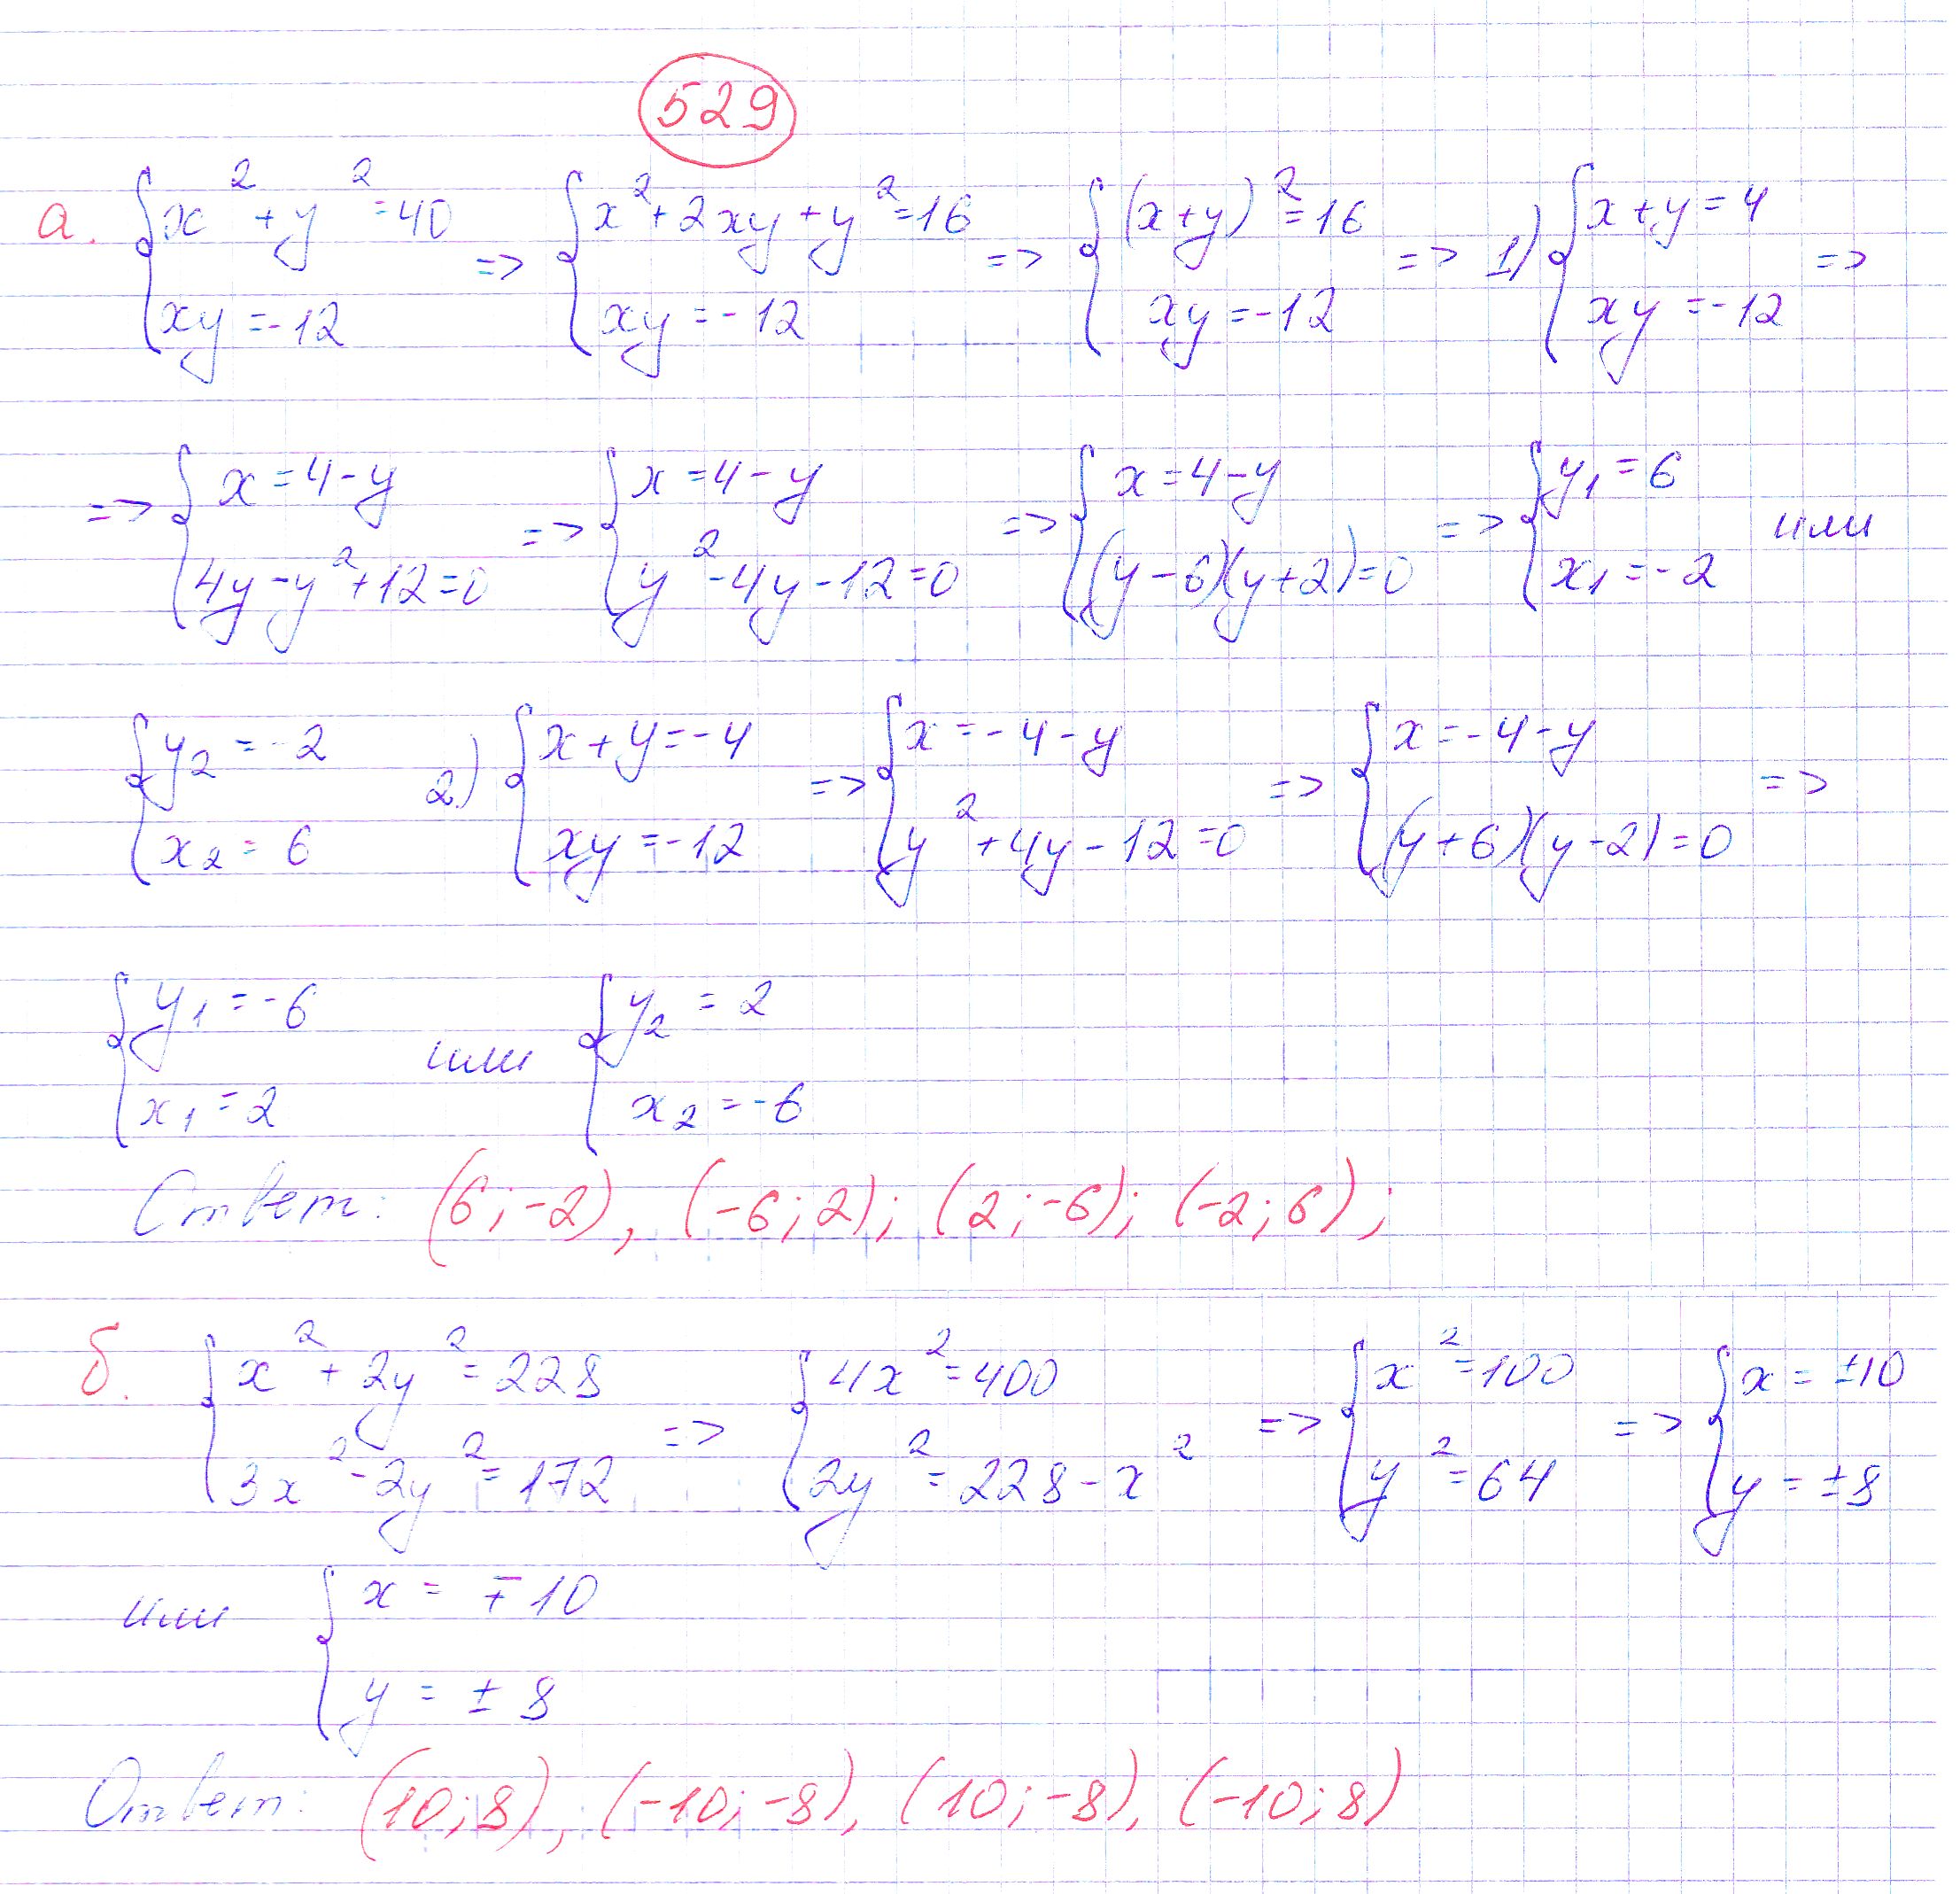 529
а. { x² + y² = 40 ; xy = -12 => { x² + 2xy + y² = 16 ; xy = -12 => { (x+y)² = 16 ; xy = -12 => 1) { x + y = 4 ; xy = -12 =>
=> { x = 4 - y ; 4y - y² + 12 = 0 => { x = 4 - y ; y² - 4y - 12 = 0 => { x = 4 - y ; (y - 6)(y + 2) = 0 => { y₁ = 6 ; x₁ = -2 или
{ y₂ = -2 ; x₂ = 6 2) { x + y = -4 ; xy = -12 => { x = -4 - y ; y² + 4y - 12 = 0 => { x = -4 - y ; (y + 6)(y - 2) = 0 =>
{ y₁ = -6 ; x₁ = 2 или { y₂ = 2 ; x₂ = -6
Ответ: (6; -2), (-6; 2); (2; -6); (-2; 6);
б. { x² + 2y² = 228 ; 3x² - 2y² = 172 => { 4x² = 400 ; 2y² = 228 - x² => { x² = 100 ; y² = 64 => { x = ±10 ; y = ±8
или { x = ∓10 ; y = ±8
Ответ: (10; 8), (-10; -8), (10; -8), (-10; 8)